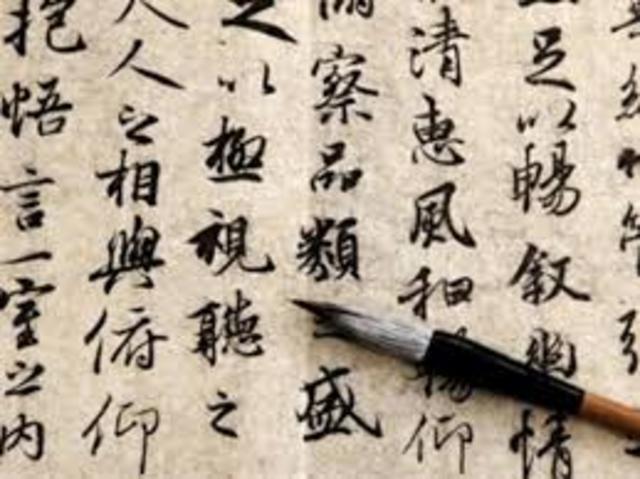 足以暢叙幽情
清惠風和暢仰
察品類盛
以極視聽之
人之相與俯仰
抱悟言一室之內